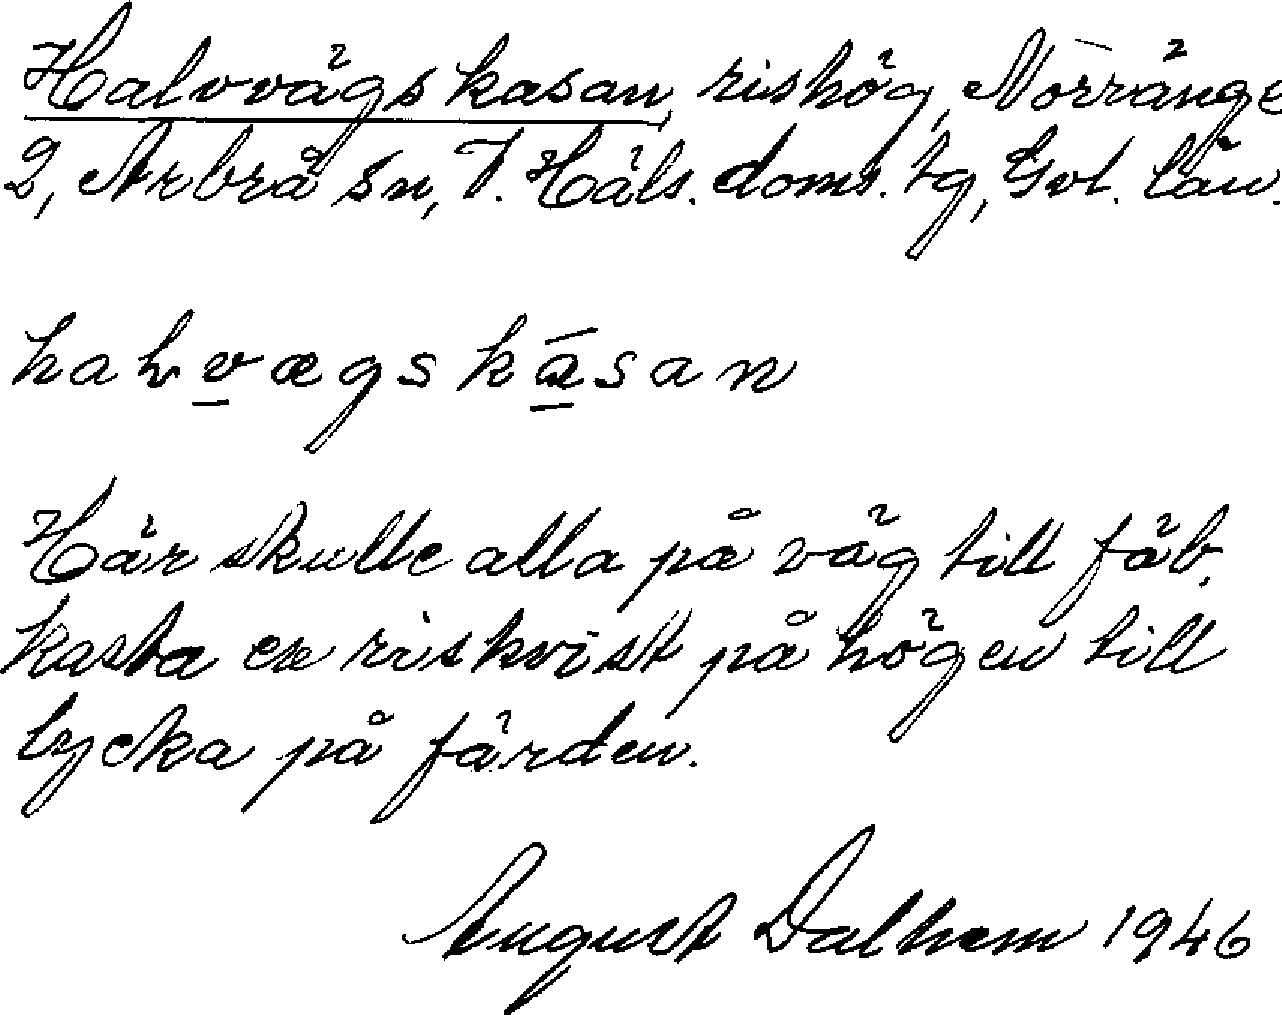 Halvvägskasan, rishög, Norränge
2, Arbrå sn, V. Häls. doms. tg, Gvl. län.
halvvægskásan
Här skulle alla på väg till fäb.
kasta en riskvist på högen till
lycka på färden.
August Dalhem 1946